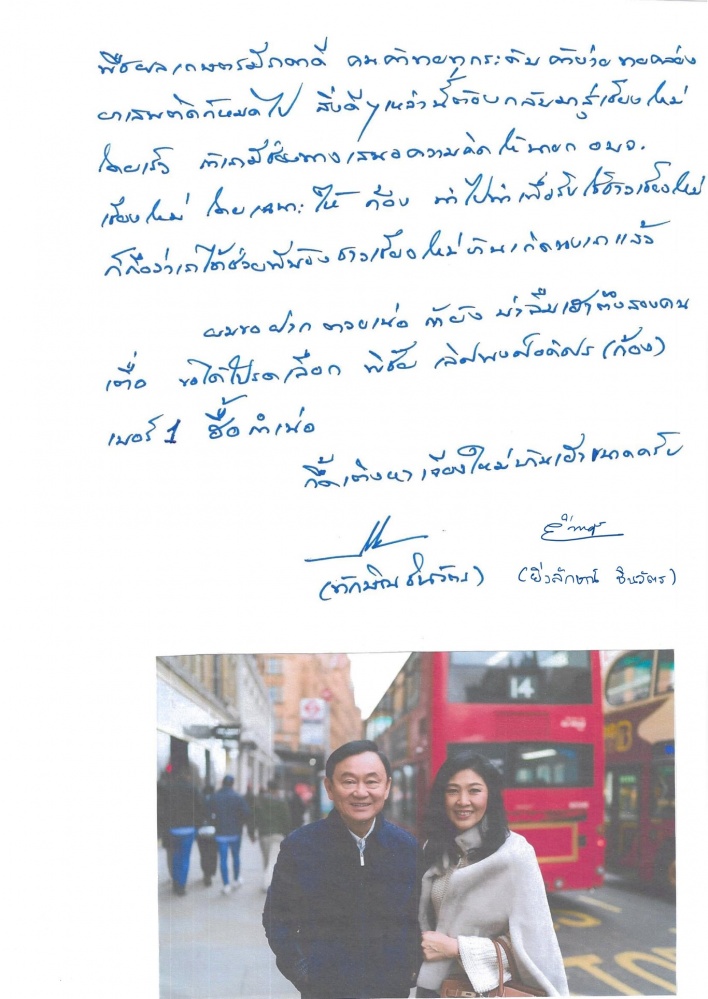 พืชผลเกษตรมีราคาดี คนค้าขายทุกระดับ ค้าง่าย ขายคล่อง
ยาเสพติดก็หมดไป สิ่งดีๆเหล่านี้ต้องกลับมาสู่เชียงใหม่
โดยเร็ว ถ้าเรามีช่องทางเสนอความคิดให้นายก อบจ.
เชียงใหม่ โดยเฉพาะให้ ก้อง นำไปทำเพื่อรับใช้ชาวเชียงใหม่
ก็ถือว่าเราได้ช่วยพี่น้องชาวเชียงใหม่บ้านเกิดของเราแล้ว
ผมขอฝาก ตวยเน่อ ถ้ายัง บ่าลืมเฮาตึงสองคน
เตื้อ ขอได้โปรดเลือก พิชัย เลิศพงศ์อดิศร (ก้อง)
เบอร์ 1 ฮื้อกำเน่อ
กึ๊ดเติงหา เจียงใหม่บ้านเฮาขนาดครับ
(ทักษิณ ชินวัตร) (ยิ่งลักษณ์ ชินวัตร)
14